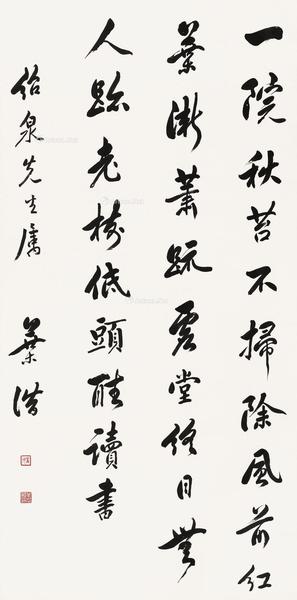 一院秋苔不掃除風前紅
葉漸蕭疏虛堂終日無
人跡老樹低頭聽讀書
紹泉先生屬 葉潛